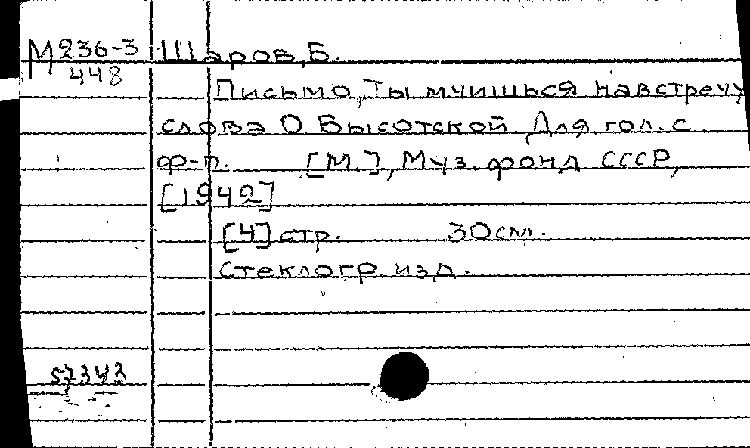 М 236-3 Шаров, Б.
448
Письмо, Ты мчишься навстречу
слова О Высотской Для гол. с
ф-п. [М.], Муз. фонд СССР,
[1942]
[4] стр. 30 см.
Стеклогр. изд.
57343